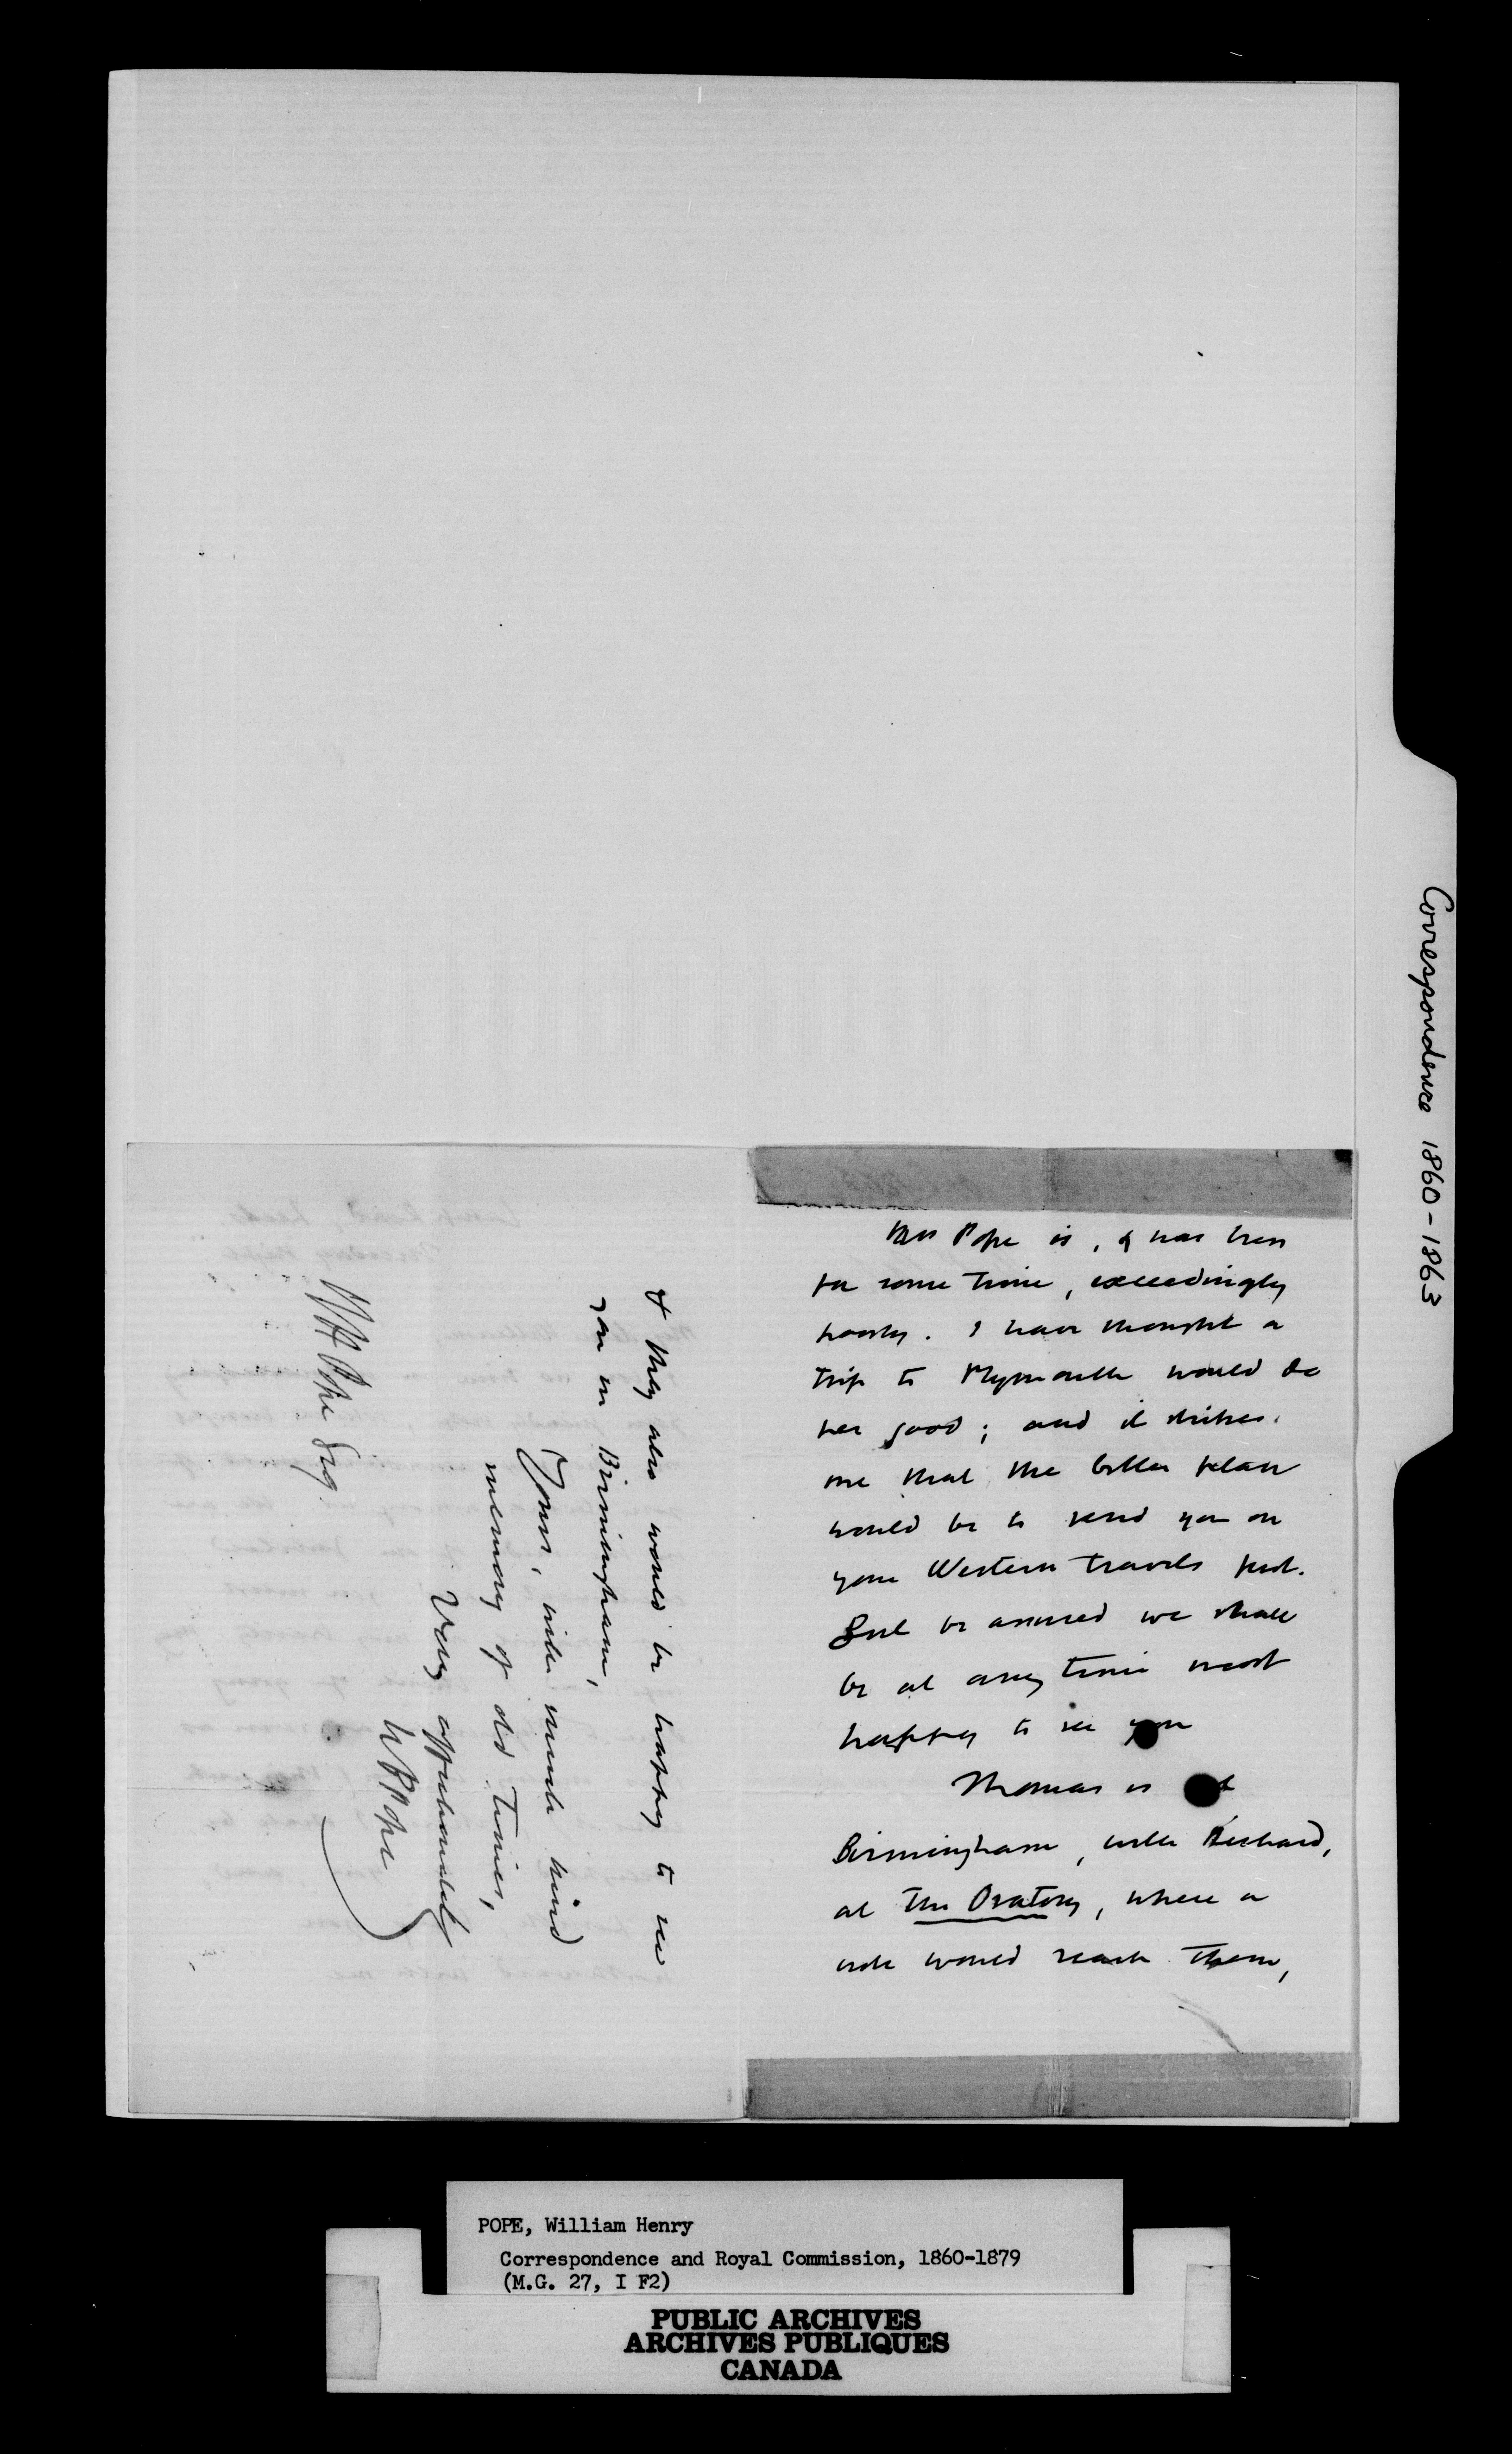 Mrs Pope is, & has been
for some time, exceedingly
poorly. I have thought a
trip to Plymouth would do
her good; and it strikes
me that the better plan
would be to send you on
your Western travels first.
But be assured we shall
be at any time most
happy to see you
Thomas is at
Birmingham, with Richard,
at the Oratory, where a
note would reach them,
& they also would be happy to see
you in Birmingham,
Yours, with much kind
memory of old times,
Very affectionately
W Pope
WH Pope Esq.
Correspondence 1860-1863
POPE, William Henry
Correspondence and Royal Commission, 1860-1879
(M.G. 27, I F2)
PUBLIC ARCHIVES
ARCHIVES PUBLIQUES
CANADA